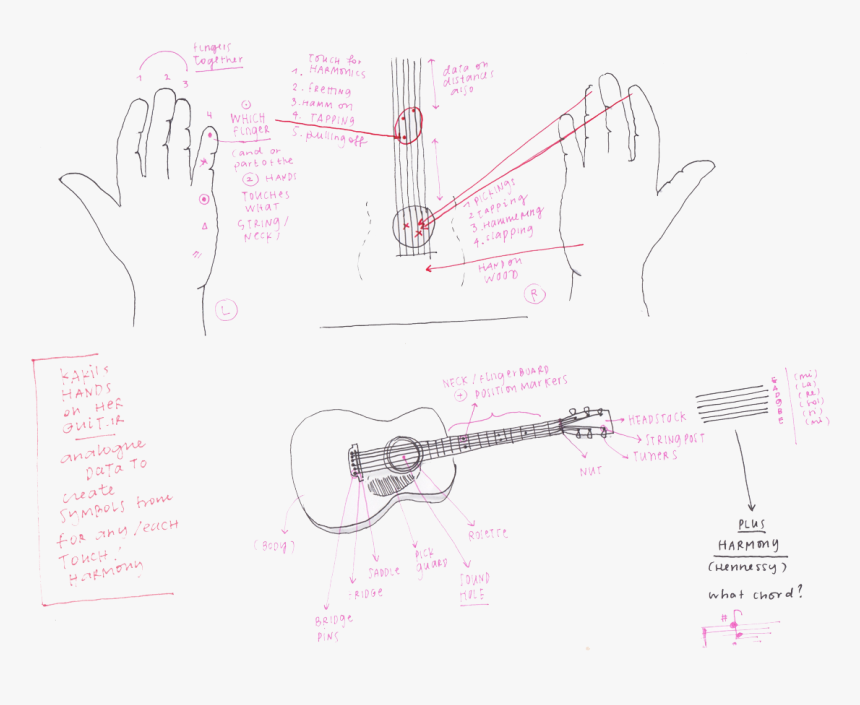 fingers
together
1 2 3
4
1
WHICH
finger
(and or
part of the
2 HAND)
TOUCHES
WHAT
STRING/
NECK/
L
TOUCH for
1. HARMONICS
2. fretting
3. HAMM ON
4. TAPPING
5. pulling off
data on
distances
also
1 PICKINGS
2 TAPPING
3. HAMMERING
4. slapping
HAND ON
WOOD
R
KAKI's
HANDS
on HER
GUITAR
analogue
DATA TO
create
SYMBOLS from
for any/each
TOUCH/
HARMONY
NECK/fingerBOARD
+ position markers
HEADSTOCK
STRING POST
TUNERS
NUT
(BODY)
ROSETTE
PICK
GUARD
SADDLE
SOUND
HOLE
BRIDGE
PINS
(mi)
(La)
(Re)
(Sol)
(mi)
PLUS
HARMONY
(Hennessy)
what chord?
#